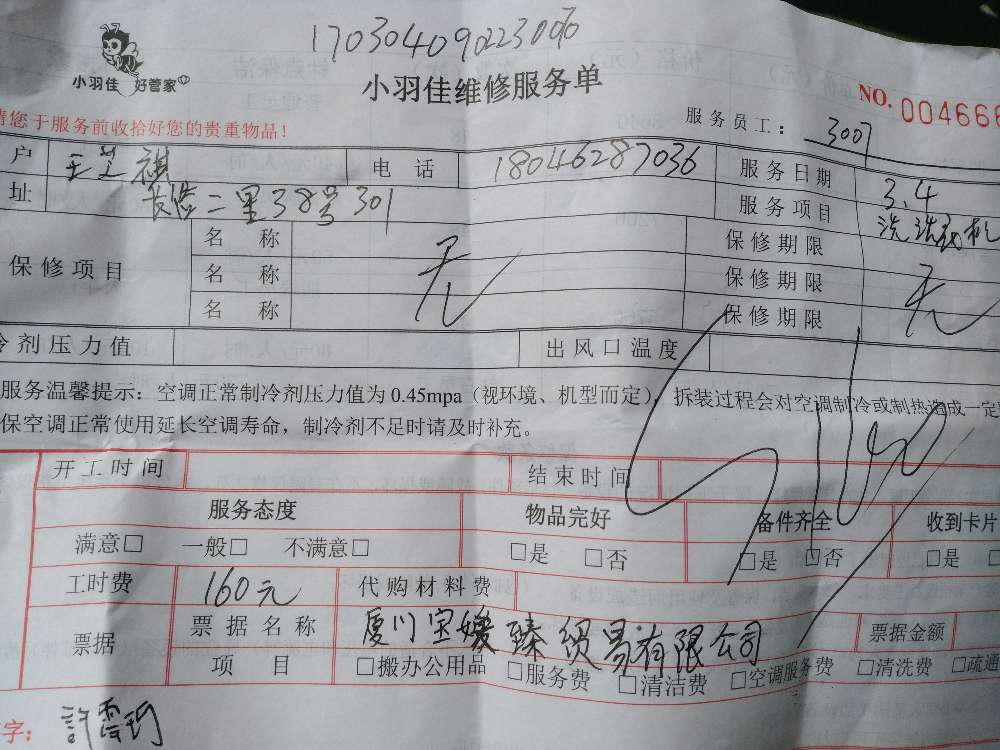 170304090223006
小羽佳 好管家
小羽佳维修服务单
NO. 004666
请您于服务前收拾好您的贵重物品！
服务员工： 3007
户 王芝祺 电 话 18046287036 服务日期 3.4
址 长浩二里38号301 服务项目 洗洗衣机
保修项目 名 称 无 保修期限 无
名 称 保修期限
名 称 保修期限
冷剂压力值 出风口温度
服务温馨提示：空调正常制冷剂压力值为0.45mpa（视环境、机型而定），拆装过程会对空调制冷或制热造成一定
保空调正常使用延长空调寿命，制冷剂不足时请及时补充。
开工时间 结束时间
服务态度 物品完好 备件齐全 收到卡片
满意□ 一般□ 不满意□ □是 □否 □是 □否 □是
工时费 160元 代购材料费
票据 票据名称 厦门宝媛臻贸易有限公司 票据金额
项 目 □搬办公用品 □服务费 □清洁费 □空调服务费 □清洗费 □疏通
字： 許雪巧